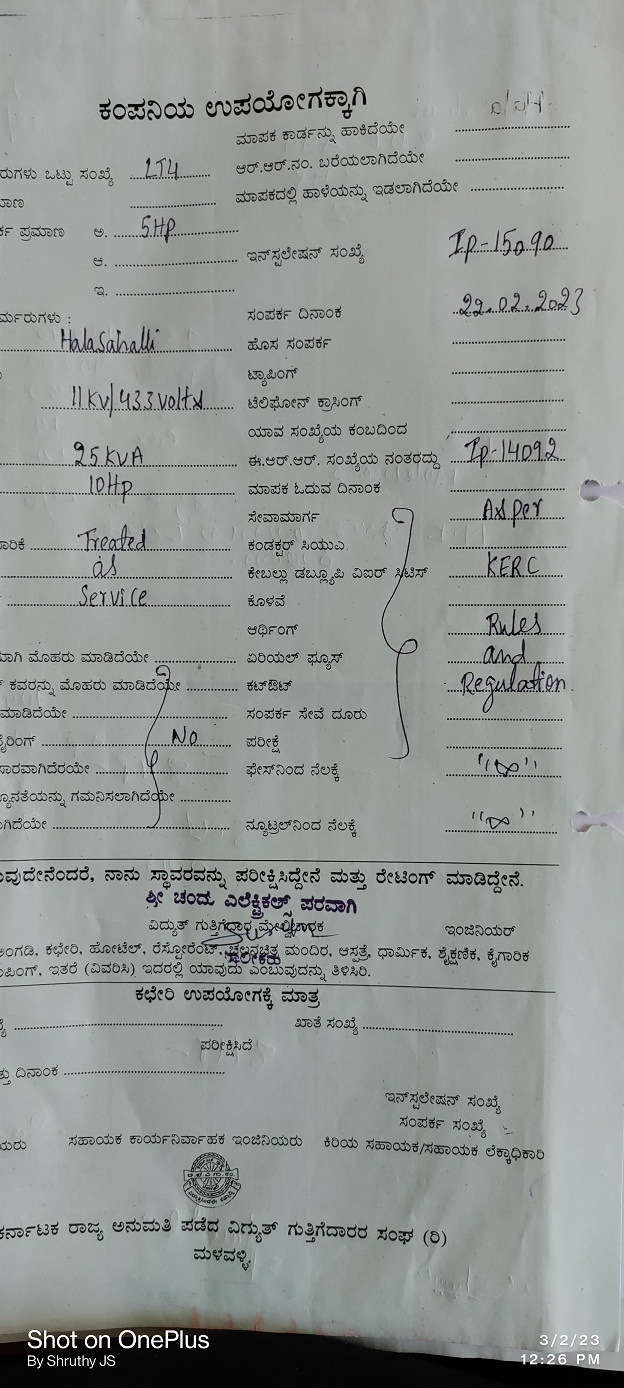 ಕಂಪನಿಯ ಉಪಯೋಗಕ್ಕಾಗಿ
ಮಾಪಕ ಕಾರ್ಡನ್ನು ಹಾಕಿದೆಯೇ
ರುಗಳು ಒಟ್ಟು ಸಂಖ್ಯೆ LT4 ಆರ್.ಆರ್.ನಂ. ಬರೆಯಲಾಗಿದೆಯೇ
ಮಾಣ ಮಾಪಕದಲ್ಲಿ ಹಾಳೆಯನ್ನು ಇಡಲಾಗಿದೆಯೇ
ರ್ಕ ಪ್ರಮಾಣ ಅ. 5Hp
ಆ. ಇನ್‌ಸ್ಪಲೇಷನ್ ಸಂಖ್ಯೆ Ip-15090
ಇ.
ರ್ಮರುಗಳು : ಸಂಪರ್ಕ ದಿನಾಂಕ 22.02.2023
Halasahalli ಹೊಸ ಸಂಪರ್ಕ
ಟ್ಯಾಪಿಂಗ್
11KV/433volts ಟೆಲಿಫೋನ್ ಕ್ರಾಸಿಂಗ್
ಯಾವ ಸಂಖ್ಯೆಯ ಕಂಬದಿಂದ
25KVA ಈ.ಆರ್.ಆರ್. ಸಂಖ್ಯೆಯ ನಂತರದ್ದು Ip-14092
10Hp ಮಾಪಕ ಓದುವ ದಿನಾಂಕ
ಸೇವಾಮಾರ್ಗ As per
ಾರಿಕೆ Treated ಕಂಡಕ್ಟರ್ ಸಿಯುಎ
as ಕೇಬಲ್ಲು ಡಬ್ಲ್ಯೂಪಿ ವಿಐಆರ್ ಸಿಟಿಸ್ KERC
Service ಕೊಳವೆ
ಆರ್ಥಿಂಗ್ Rules
ಯಾಗಿ ಮೊಹರು ಮಾಡಿದೆಯೇ ಏರಿಯಲ್ ಫ್ಯೂಸ್ and
ಕವರನ್ನು ಮೊಹರು ಮಾಡಿದೆಯೇ ಕಟ್‌ಔಟ್ Regulation
ಮಾಡಿದೆಯೇ ಸಂಪರ್ಕ ಸೇವೆ ದೂರು
ೈರಿಂಗ್ No ಪರೀಕ್ಷೆ
ಸಾರವಾಗಿದೆರಯೇ ಫೇಸ್‌ನಿಂದ ನೆಲಕ್ಕೆ "∞"
್ಯೂನತೆಯನ್ನು ಗಮನಿಸಲಾಗಿದೆಯೇ
ಾಗಿದೆಯೇ ನ್ಯೂಟ್ರಲ್‌ನಿಂದ ನೆಲಕ್ಕೆ "∞"
ುವುದೇನೆಂದರೆ, ನಾನು ಸ್ಥಾವರವನ್ನು ಪರೀಕ್ಷಿಸಿದ್ದೇನೆ ಮತ್ತು ರೇಟಿಂಗ್ ಮಾಡಿದ್ದೇನೆ.
ಶ್ರೀ ಚಂದು ಎಲೆಕ್ಟ್ರಿಕಲ್ಸ್ ಪರವಾಗಿ
ವಿದ್ಯುತ್ ಗುತ್ತಿಗೆದಾರ ಮೇಲ್ವಿಚಾರಕ ಇಂಜಿನಿಯರ್
ಅಂಗಡಿ, ಕಛೇರಿ, ಹೋಟೆಲ್, ರೆಸ್ಟೋರೆಂಟ್, ಚಲನಚಿತ್ರ ಮಂದಿರ, ಆಸ್ಪತ್ರೆ, ಧಾರ್ಮಿಕ, ಶೈಕ್ಷಣಿಕ, ಕೈಗಾರಿಕ
ಮಾಲೀಕರು
ಪಿಂಗ್, ಇತರೆ (ವಿವರಿಸಿ) ಇದರಲ್ಲಿ ಯಾವುದು ಎಂಬುವುದನ್ನು ತಿಳಿಸಿರಿ.
ಕಛೇರಿ ಉಪಯೋಗಕ್ಕೆ ಮಾತ್ರ
ಖಾತೆ ಸಂಖ್ಯೆ
ಪರೀಕ್ಷಿಸಿದೆ
ತ್ತು ದಿನಾಂಕ
ಇನ್‌ಸ್ಪಲೇಷನ್ ಸಂಖ್ಯೆ
ಸಂಪರ್ಕ ಸಂಖ್ಯೆ
ಯರು ಸಹಾಯಕ ಕಾರ್ಯನಿರ್ವಾಹಕ ಇಂಜಿನಿಯರು ಕಿರಿಯ ಸಹಾಯಕ/ಸಹಾಯಕ ಲೆಕ್ಕಾಧಿಕಾರಿ
ಕರ್ನಾಟಕ ರಾಜ್ಯ ಅನುಮತಿ ಪಡೆದ ವಿದ್ಯುತ್ ಗುತ್ತಿಗೆದಾರರ ಸಂಘ (ರಿ)
ಮಳವಳ್ಳಿ.
Shot on OnePlus
By Shruthy JS
3/2/23
12:26 PM